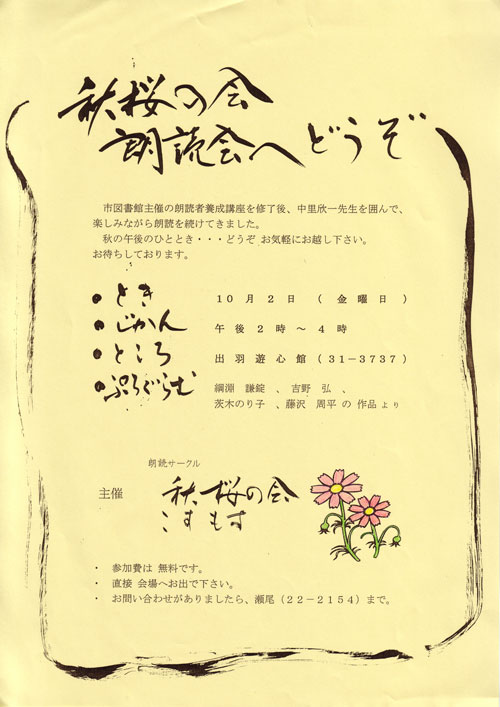 秋桜の会
朗読会へどうぞ
市図書館主催の朗読者養成講座を修了後、中里欣一先生を囲んで、
楽しみながら朗読を続けてきました。
秋の午後のひととき・・・どうぞ お気軽にお越し下さい。
お待ちしております。
●とき 10月2日 (金曜日)
●じかん 午後2時～4時
●ところ 出羽遊心館(31-3737)
●ぷろぐらむ 綱淵 謙錠 、 吉野 弘 、
茨木のり子 、藤沢 周平 の 作品 より
朗読サークル
主催 秋桜の会
こすもす
・ 参加費は 無料です。
・ 直接 会場へお出で下さい。
・ お問い合わせがありましたら、瀬尾(22-2154)まで。